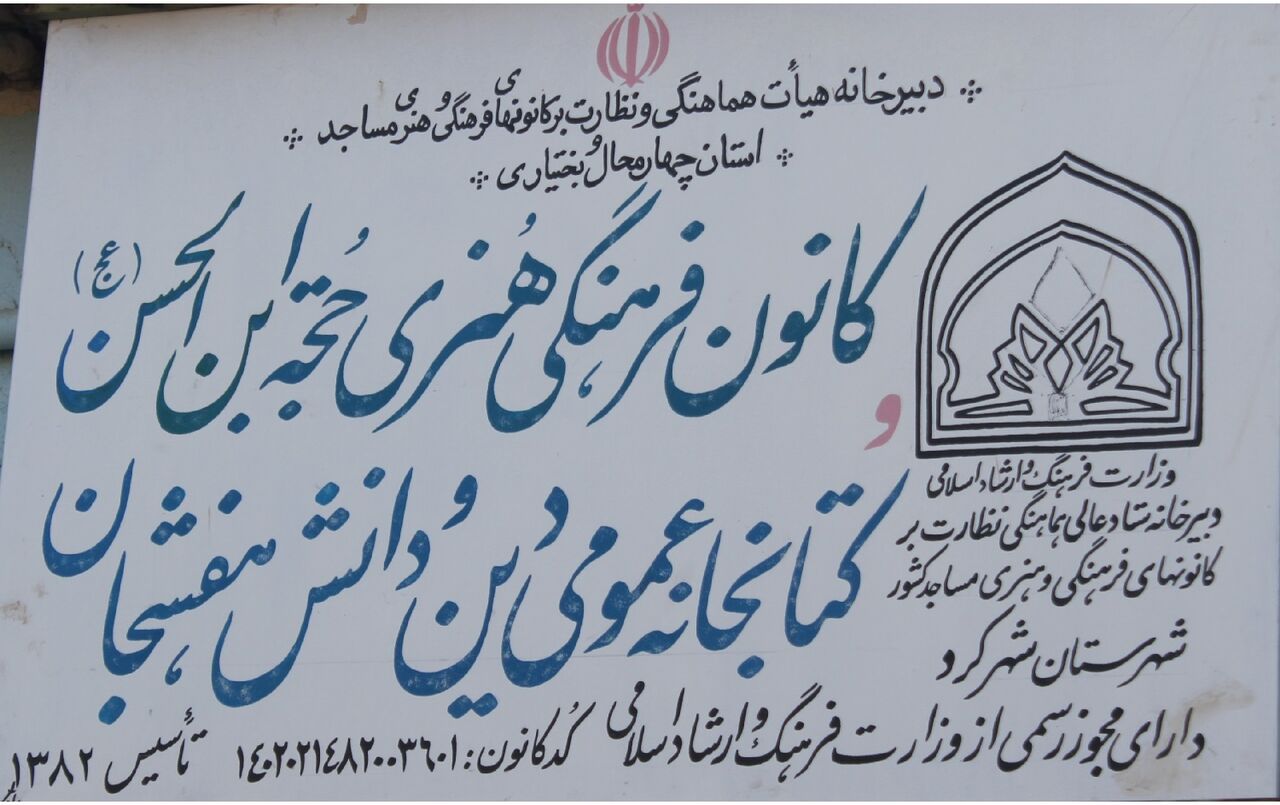 دبیرخانه هیأت هماهنگی و نظارت بر کانونهای فرهنگی و هنری مساجد
استان چهارمحال و بختیاری
کانون فرهنگی هُنری حُجّه ابن الحسن (عج)
و
کتابخانه عمومی دین و دانش هفشجان
وزارت فرهنگ و ارشاد اسلامی
دبیرخانه ستاد عالی هماهنگی نظارت بر
کانونهای فرهنگی و هنری مساجد کشور
شهرستان شهرکرد
دارای مجوز رسمی از وزارت فرهنگ و ارشاد اسلامی کُد کانون: ۱۴۰۲۰۲۱۴۸۲۰۰۳۶۰۱ تأسیس ۱۳۸۲